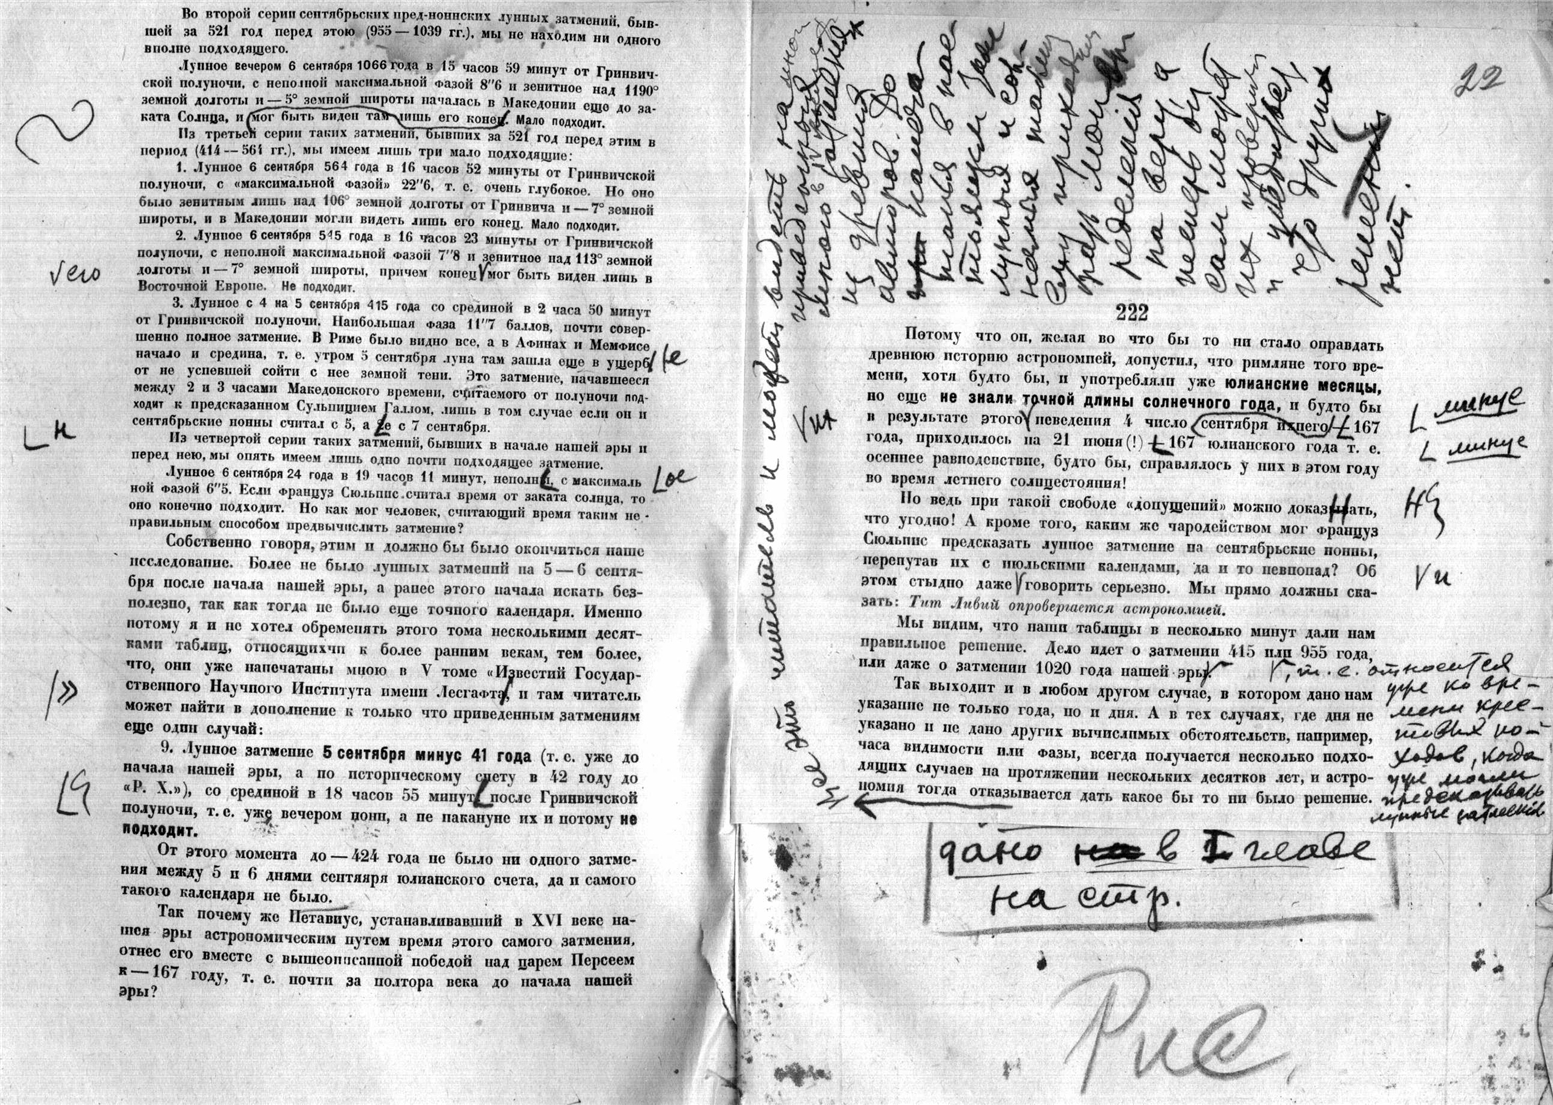 Во второй серии сентябрьских пред-ноннских лунных затмений, быв-
шей за 521 год перед этою (955 — 1039 гг.), мы не находим ни одного
вполне подходящего.
Лунное вечером 6 сентября 1066 года в 15 часов 59 минут от Гринвич-
ской полуночи, с неполной максимальной фазой 8"6 и зенитное над 1190°
земной долготы и — 5° земной широты началась в Македонии еще до за-
ката Солнца, и мог быть виден там лишь его конец. Мало подходит.
Из третьей серии таких затмений, бывших за 521 год перед этим в
период (414 — 561 гг.), мы имеем лишь три мало подходящие:
1. Лунное 6 сентября 564 года в 16 часов 52 минуты от Гринвичской
полуночи, с «максимальной фазой» 22"6, т. е. очень глубокое. Но оно
было зенитным лишь над 106° земной долготы от Гринвича и — 7° земной
широты, и в Македонии могли видеть лишь его конец. Мало подходит.
2. Лунное 6 сентября 545 года в 16 часов 23 минуты от Гринвичской
полуночи, с неполной максимальной фазой 7"8 и зенитное над 113° земной
долготы и — 7° земной широты, причем конец мог быть виден лишь в
√ его
Восточной Европе. Не подходит.
3. Лунное с 4 на 5 сентября 415 года со срединой в 2 часа 50 минут
от Гринвичской полуночи. Наибольшая фаза 11"7 баллов, почти совер-
шенно полное затмение. В Риме было видно все, а в Афинах и Мемфисе
начало и средина, т. е. утром 5 сентября луна там зашла еще в ущерб
не
от не успевшей сойти с нее земной тени. Это затмение, начавшееся
между 2 и 3 часами Македонского времени, считаемого от полуночи под-
ходит к предсказанном Сульпицием Галлом, лишь в том случае если он и
сентябрьские нонны считал с 5, а не с 7 сентября.
н
Из четвертой серии таких затмений, бывших в начале нашей эры и
перед нею, мы опять имеем лишь одно почти подходящее затмение.
Лунное 6 сентября 24 года в 19 часов 11 минут, неполн, с максималь
ое
ной фазой 6"5. Если Француз Сюльпис считал время от заката солнца, то
оно конечно подходит. Но как мог человек, считающий время таким не-
правильным способом предвычислить затмение?
Собственно говоря, этим и должно бы было окончиться наше
исследование. Более не было лунных затмений на 5 — 6 сентя-
бря после начала нашей эры, а ранее этого начала искать без-
полезно, так как тогда не было еще точного календаря. Именно
потому я и не хотел обременять этого тома несколькими десят-
ками таблиц, относящихчи к более ранним векам, тем более,
что, они уже напечатаны мною в V томе «Известий Государ-
ственного Научного Института имени Лесгафта, и там читатель
»
может найти в дополнение к только что приведенным затмениям
еще один случай:
9. Лунное затмение 5 сентября минус 41 года (т. е. уже до
начала нашей эры, а по историческому счету в 42 году до
«Р. Х.»), со срединой в 18 часов 55 минут после Гринвичской
полуночи, т. е. уже вечером нонн, а не накануне их и потому не
подходит.
От этого момента до — 424 года не было ни одного затме-
ния между 5 и 6 днями сентяяря юлианского счета, да и самого
такого календаря не было.
Так почему же Петавиус, устанавливавший в XVI веке на-
шея эры астрономическим путем время этого самого затмения,
отнес его вместе с вышеописанной победой над царем Персеем
к — 167 году, т. е. почти за полтора века до начала нашей
эры?
22
222
Все это читатель и может видеть на мной
приведенных
много в
из древних
авторов. До
настоящем
лунных и сол
ределения
на веру, а
сам может
их проверить
и
что других
решений
нет.
Потому что он, желая во что бы то ни стало оправдать
древнюю историю астрономией, допустил, что римляне того вре-
мени, хотя будто бы, и употребляли уже юлианские месяцы,
но еще не знали точной длины солнечного года, и будто бы
в результате этого неведения 4 число сентября ихнего 167
и
минус
года, приходилось на 21 июня (!) 167 юлианского года т. е.
минус
осеннее равноденствие, будто бы, справлялось у них в этом году
во время летнего солнцестояния!
Но ведь при такой свободе «допущений» можно доказнать,
что угодно! А кроме того, каким же чародейством мог Француз
Сюльпис предсказать лунное затмение на сентябрьские нонны,
перепутав их с июльскими календами, да и то невпопад? Об
этом стыдно даже говорить серьезно. Мы прямо должны ска-
√ и
зать: Тит Ливий опровергается астрономией.
Мы видим, что наши таблицы в несколько минут дали нам
правильное решение. Дело идет о затмении 415 или 955 года,
или даже о затмении 1020 года нашей эры.
, т. е. относится
уже ко вре-
мени крес-
товых по-
ходов, когда
уже могли
предсказывать
лунные затмения
Так выходит и в любом другом случае, в котором дано нам
указание не только года, но и дня. А в тех случаях, где дня не
указано и не дано других вычислимых обстоятельств, например,
часа видимости или фазы, всегда получается несколько подхо-
дящих случаев на протяжении нескольких десятков лет, и астро-
номия тогда отказывается дать какое бы то ни было решение.
дано на в I главе
на стр.
Рис.